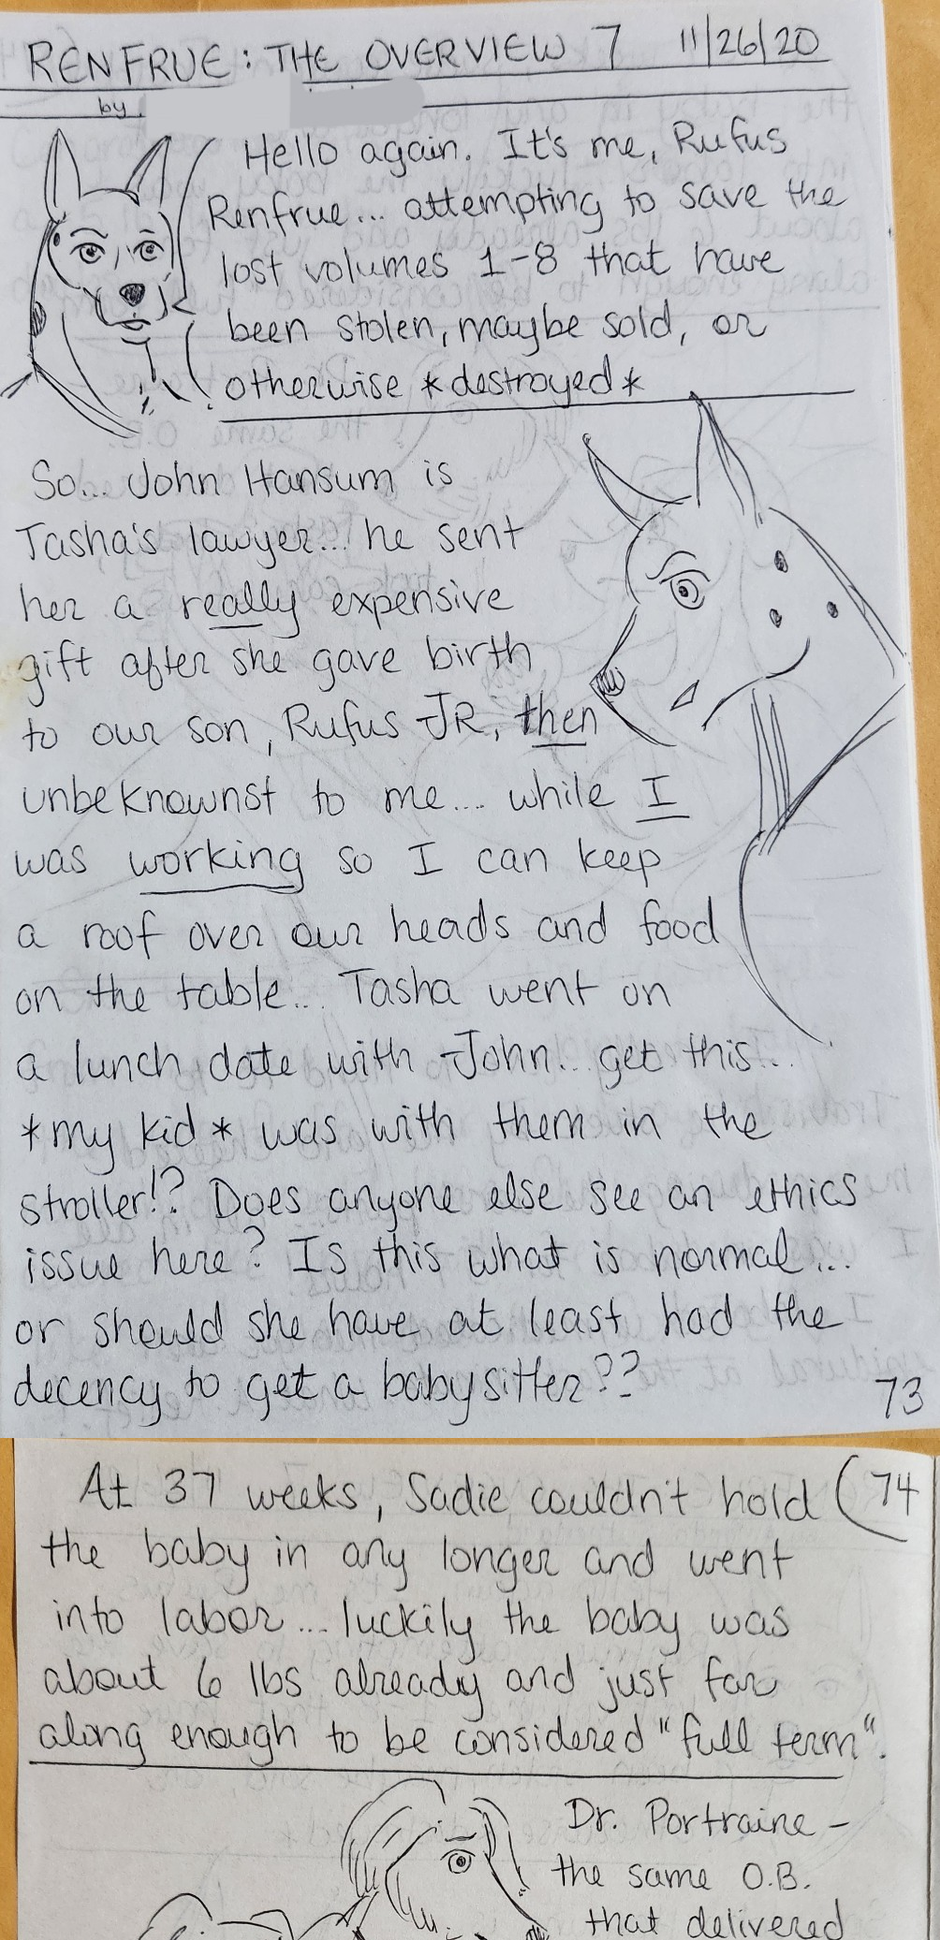 RENFRUE: THE OVERVIEW 7 11/26/20
by
Hello again. It's me, Rufus
Renfrue... attempting to save the
lost volumes 1-8 that have
been stolen, maybe sold, or
otherwise *destroyed*
So... John Hansum is
Tasha's lawyer... he sent
her a really expensive
gift after she gave birth
to our son, Rufus JR, then
unbeknownst to me... while I
was working so I can keep
a roof over our heads and food
on the table... Tasha went on
a lunch date with John... get this...
*my kid* was with them in the
stroller!? Does anyone else see an ethics
issue here? Is this what is normal...
or should she have at least had the
decency to get a babysitter??
73
74
At 37 weeks, Sadie couldn't hold
the baby in any longer and went
into labor... luckily the baby was
about 6 lbs already and just far
along enough to be considered "full term".
Dr. Portraine -
the same O.B.
that delivered